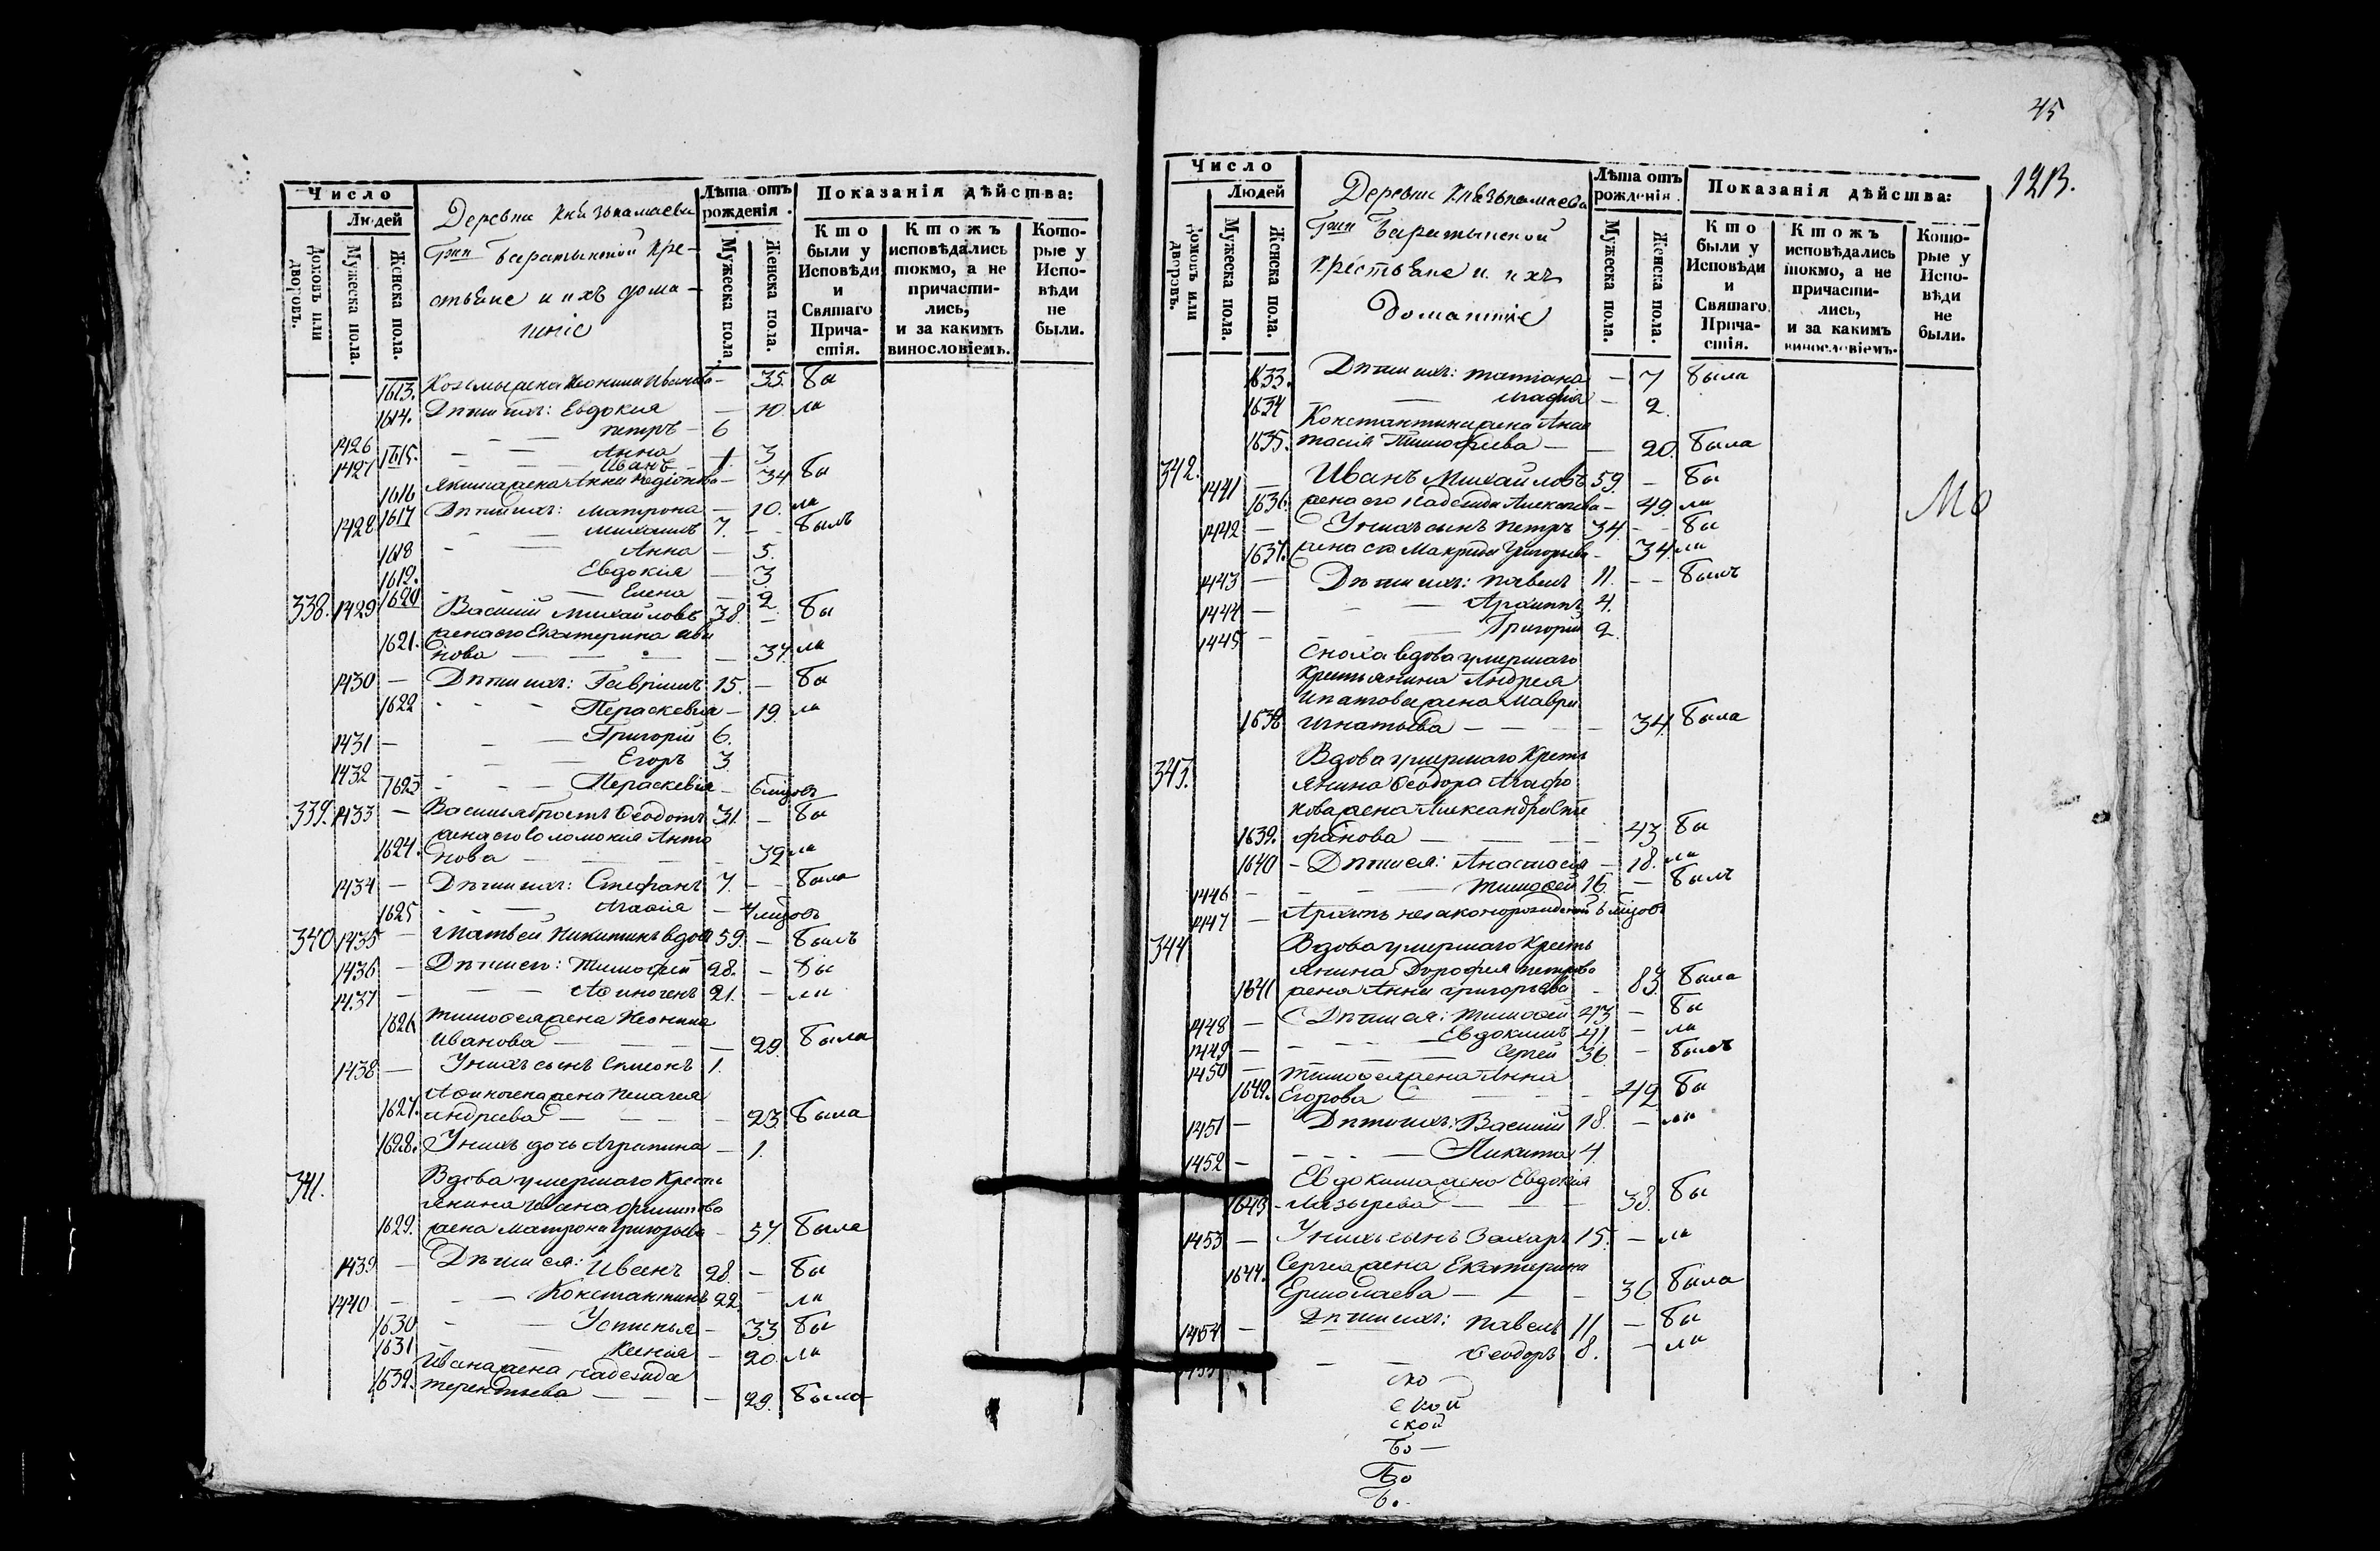 Число
Людей
Домовъ или дворовъ.
Мужеска пола.
Женска пола.
Деревни Князькамаева
Гжи Баратынской кре-
стьяне и ихъ дома-
шніе
Лѣта отъ рожденія.
Мужеска пола.
Женска пола.
Показанія дѣйства:
Кто были у Исповѣди и Святаго Прича-стія.
Ктожъ исповѣдались токмо, а не причасти-лись, и за какимъ винословіемъ.
Кото-рые у Испо-вѣди не были.
1613. Козьмы жена Неонила Иванова — 35. бы
1614. Дѣти ихъ: Евдокія — 10. ли
1426 — Петръ — 6
1615. — Анна — 3
1427 — Иванъ — 1.
1616 Якима жена Анна Родіонова — 34 бы
1617 Дѣти ихъ: Матрона — 10. ли
1428 — Михаилъ 7. — былъ
1618 — Анна — 5.
1619. — Евдокія — 3.
1620 — Елена — 2.
338. 1429 Василій Михайловъ 38. — бы
1621. жена его Екатерина Ива
нова — 37. ли
1430 — Дѣти ихъ: Гавріилъ 15. — бы
1622 — Пераскевія — 19. ли
1431 — Григорій 6.
1432 — Егоръ 3
1623 — Пераскевія — 6 мцовъ
339. 1433 — Васильябратъ Ѳеодотъ 31. — бы
1624. жена его Соломонія Анто
нова — 32 ли
1434 — Дѣти ихъ: Стефанъ 7. — была
1625 — Агаѳія — 4 мцовъ
340 1435 — Матвей Никитинъ вдов 59. — былъ
1436 — Дѣти его: Тимофей 28. — бы
1437 — Аѳиногенъ 21. — ли
1626 Тимоѳея жена Неонила
Иванова — 29. была
1438 — У нихъ сынъ Симеонъ 1.
1627. Аѳиногена жена Пелагея
Андреева — 23. была
1628. У нихъ дочь Агрипина — 1.
341. Вдова умершаго кресть
янина Ивана Филипова
1629. жена Матрона Григорьева — 57. была
1439 — Дѣти ея: Иванъ 28. — бы
1440 — Константинъ 22. — ли
1630 — Устинья — 33 бы
1631 — Ксенія — 20. ли
1632. Ивана жена Надежда
Терентьева — 29. была
45
1213.
Число
Людей
Домовъ или дворовъ.
Мужеска пола.
Женска пола.
Деревни Князькамаева
Гжи Баратынской
крестьяне и ихъ
домашніе
Лѣта отъ рожденія.
Мужеска пола.
Женска пола.
Показанія дѣйства:
Кто были у Исповѣди и Святаго Прича-стія.
Ктожъ исповѣдались токмо, а не причасти-лись, и за какимъ винословіемъ.
Кото-рые у Испо-вѣди не были.
1633. Дѣти ихъ: Татіана — 7 была
1634 — Марѳа — 2.
Константина жена Анас
1635. тасія Тимофѣева — 20. была
342. 1441 — Иванъ Михайловъ 59. — бы
1636. жена его Надежда Алексѣева — 49. ли
1442 — У нихъ сынъ Петръ 34. — бы
1637. жена его Макрида Григорьева — 34. ли
1443 — Дѣти ихъ: Павелъ 11. — былъ
1444 — Архиппъ 4.
1445 — Григорій 2.
Сноха вдова умершаго
крестьянина Андрея
Ипатова жена Мавра
1638 Игнатьева — 34. была
Мо
343. Вдова умершаго кресть
янина Ѳеодора Агафо
нова жена Александра Сте
1639. фанова — 43 бы
1640 — Дѣти ея: Анастасія — 18. ли
1446 — Тимоѳей 16. — былъ
1447 — Архипъ незаконорожденой 6 мцовъ
344 Вдова умершаго кресть
янина Дорофея Петрова
1641 жена Анна Григорьева — 83. была
1448 — Дѣти ея: Тимоѳей 43 — бы
1449 — Евдокимъ 41. — ли
1450 — Сергей 36. — былъ
Тимоѳея жена Анна
1642. Егорова — 42 бы
1451 — Дѣти ихъ: Василій 18. — ли
1452 — Никита 4
Евдокима жена Евдокія
1643 Лазырева — 38. бы
1453 — У нихъ сынъ Захаръ 15. — ли
1644. Сергея жена Екатерина
Ермолаева — 36. была
1454 — Дѣти ихъ: Павелъ 11 — бы
1455 — Ѳеодоръ 8. — ли
ско
ской
ской
Бо —
Бо
Бо.